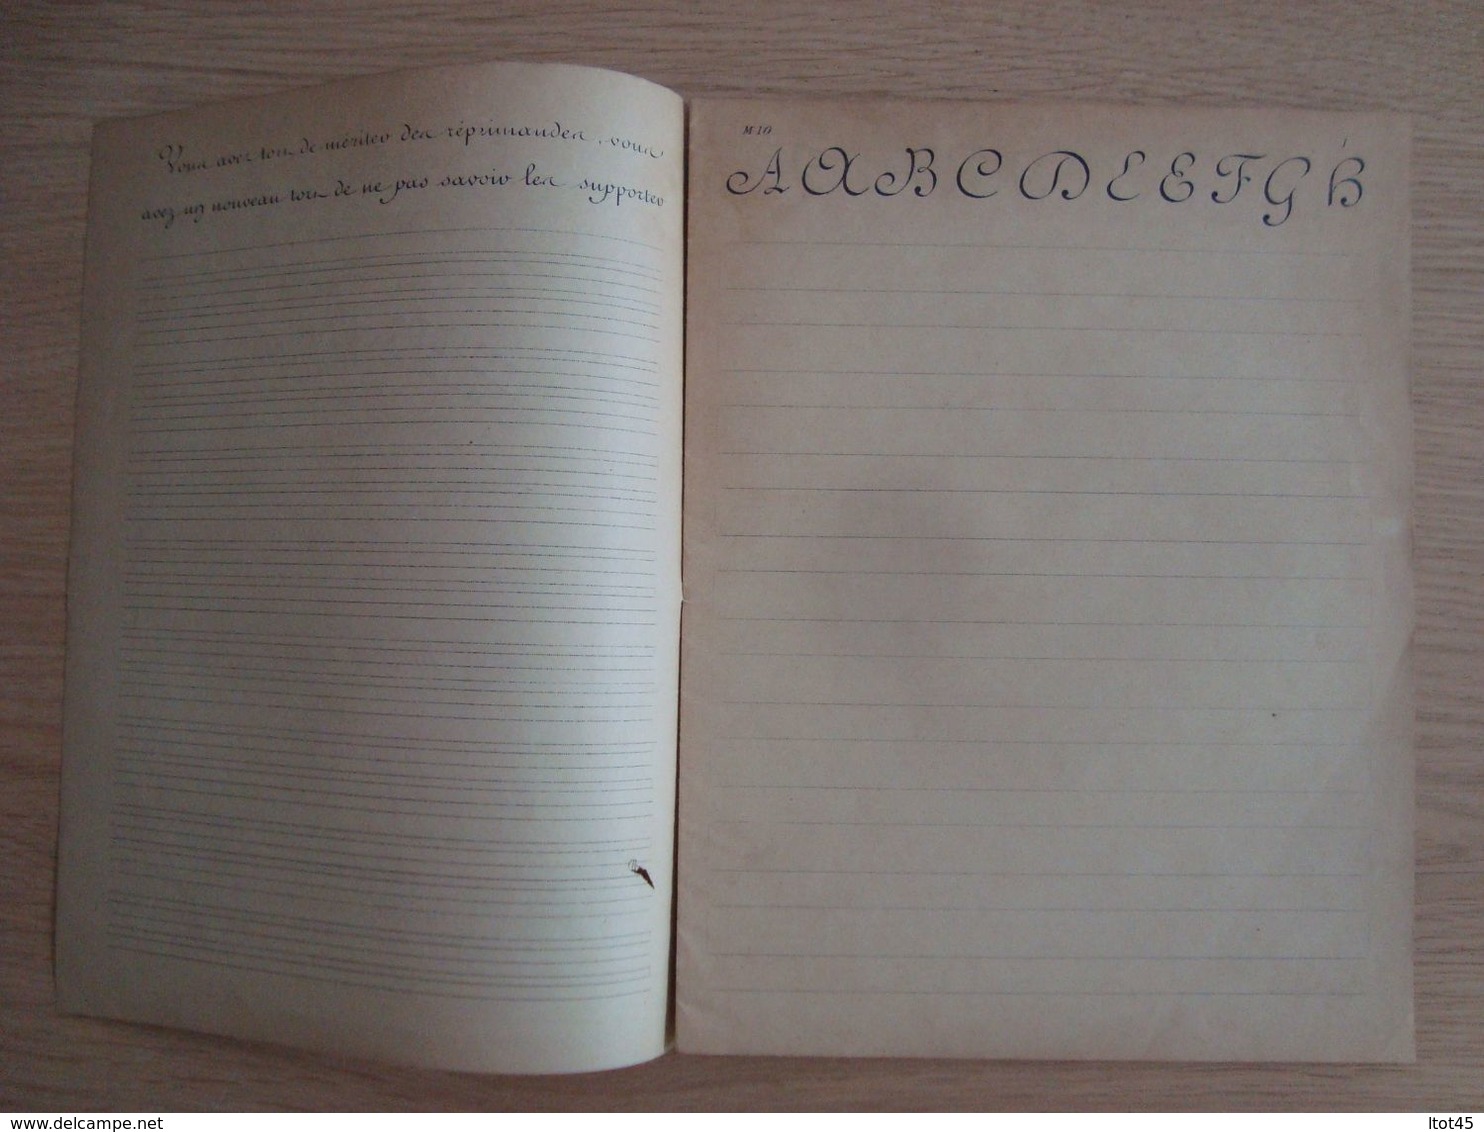 Vous avez tort de mériter des réprimandes, vous
avez un nouveau tort de ne pas savoir les supporter
M 10
A A B C D E E F G H
delcampe.net
ltot45